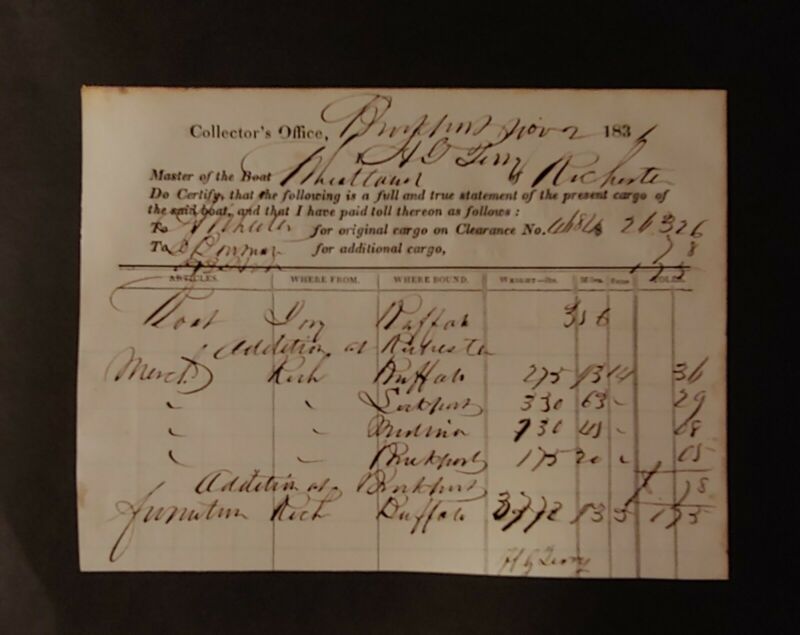 Collector's Office, Brockport Nov 2 183
H G Terry
Master of the Boat Wheatland of Rochester
Do Certify, that the following is a full and true statement of the present cargo of
the said boat, and that I have paid toll thereon as follows :
To Wheeler for original cargo on Clearance No. 26 326
To Bowman for additional cargo, 78
175
ARTICLES. WHERE FROM. WHERE BOUND. WEIGHT—lbs. Miles. TOLLS.
Boat Troy Buffalo 356
Addition at Rochester
Merch Roch Buffalo 275 93 14 36
" " Lockport 330 63 " 29
" " Medina 130 45 " 08
" " Brockport 175 20 " 05
Addition at Brockport 78
furniture Roch Buffalo 3772 93 5 175
H G Terry